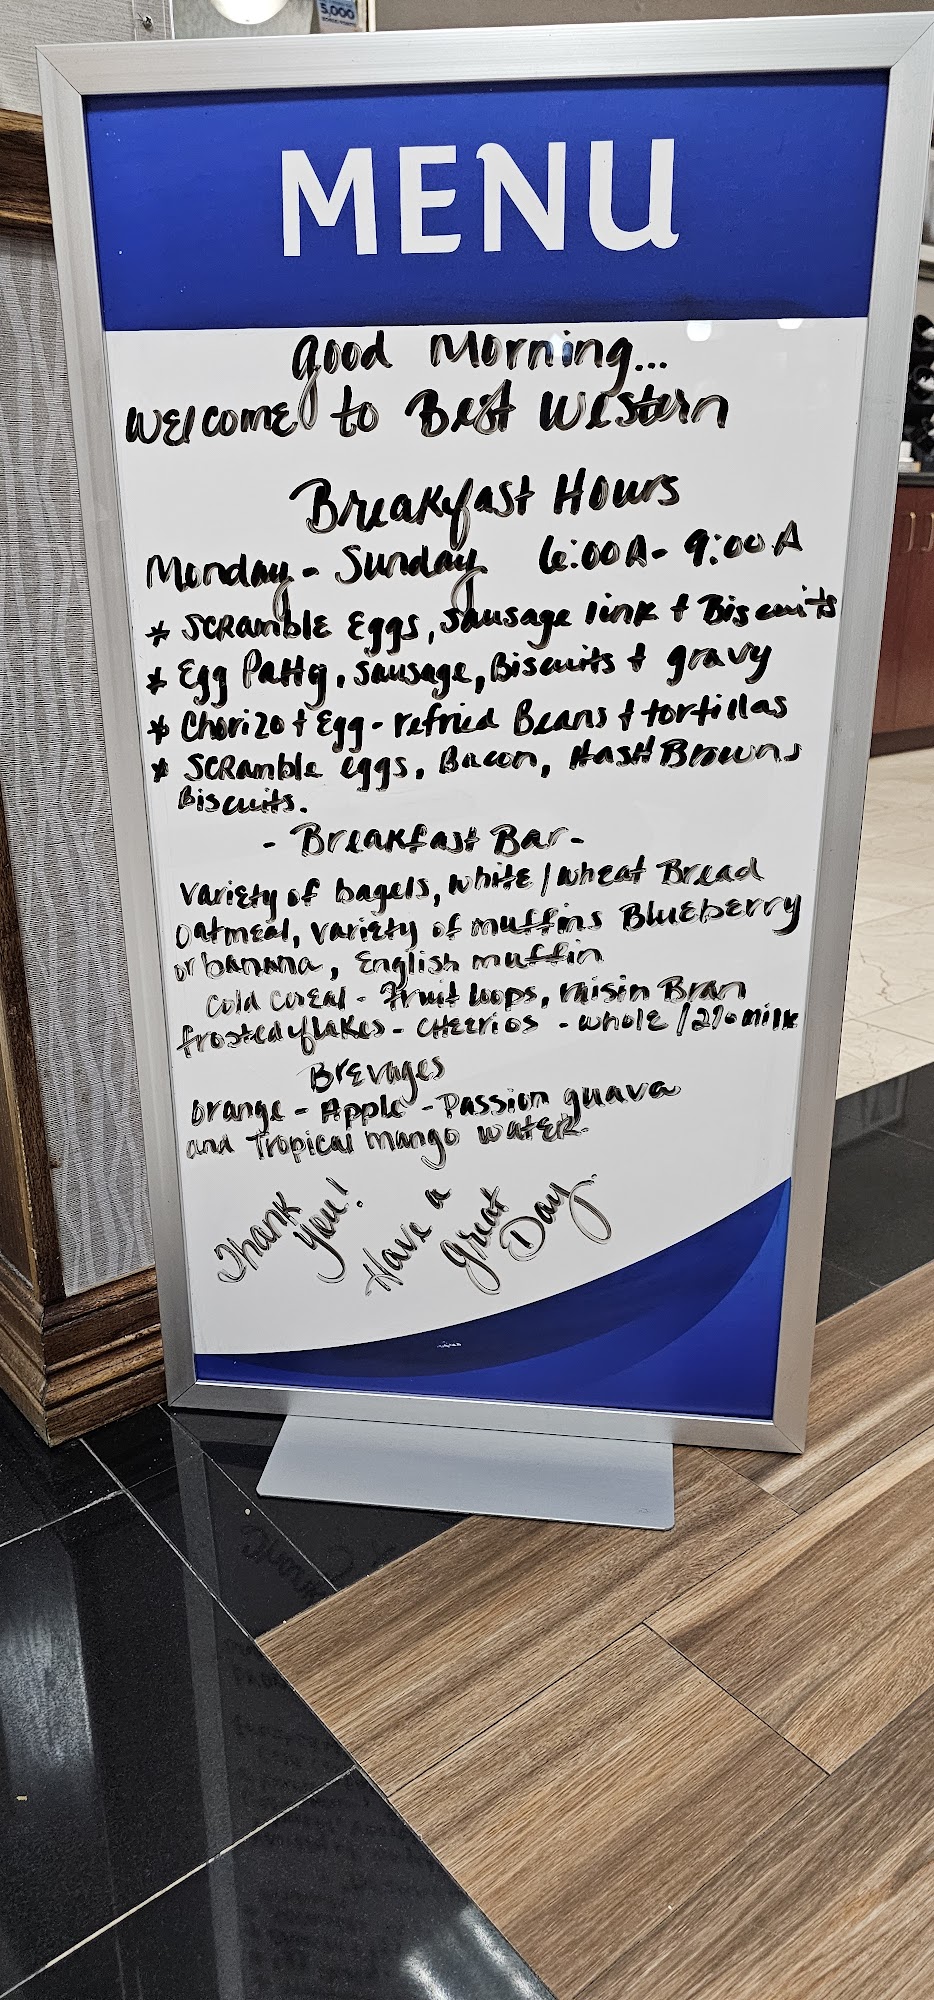 5,000
MENU
Good Morning...
Welcome to Best Western
Breakfast Hours
Monday - Sunday 6:00A - 9:00A
* Scramble Eggs, Sausage link + Biscuits
* Egg Patty, Sausage, Biscuits + gravy
* Chorizo + Egg - refried Beans + tortillas
* Scramble eggs, Bacon, Hash Browns
Biscuits.
- Breakfast Bar -
Variety of bagels, White / Wheat Bread
Oatmeal, Variety of muffins Blueberry
or banana, English muffin
cold cereal - Fruit loops, raisin Bran
frosted flakes - Cheerios - whole / 2% milk
Brevages
Orange - Apple - Passion guava
and Tropical mango water.
Thank you! Have a great Day.